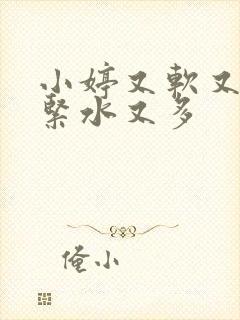 小婷又軟又
緊水又多
俺小